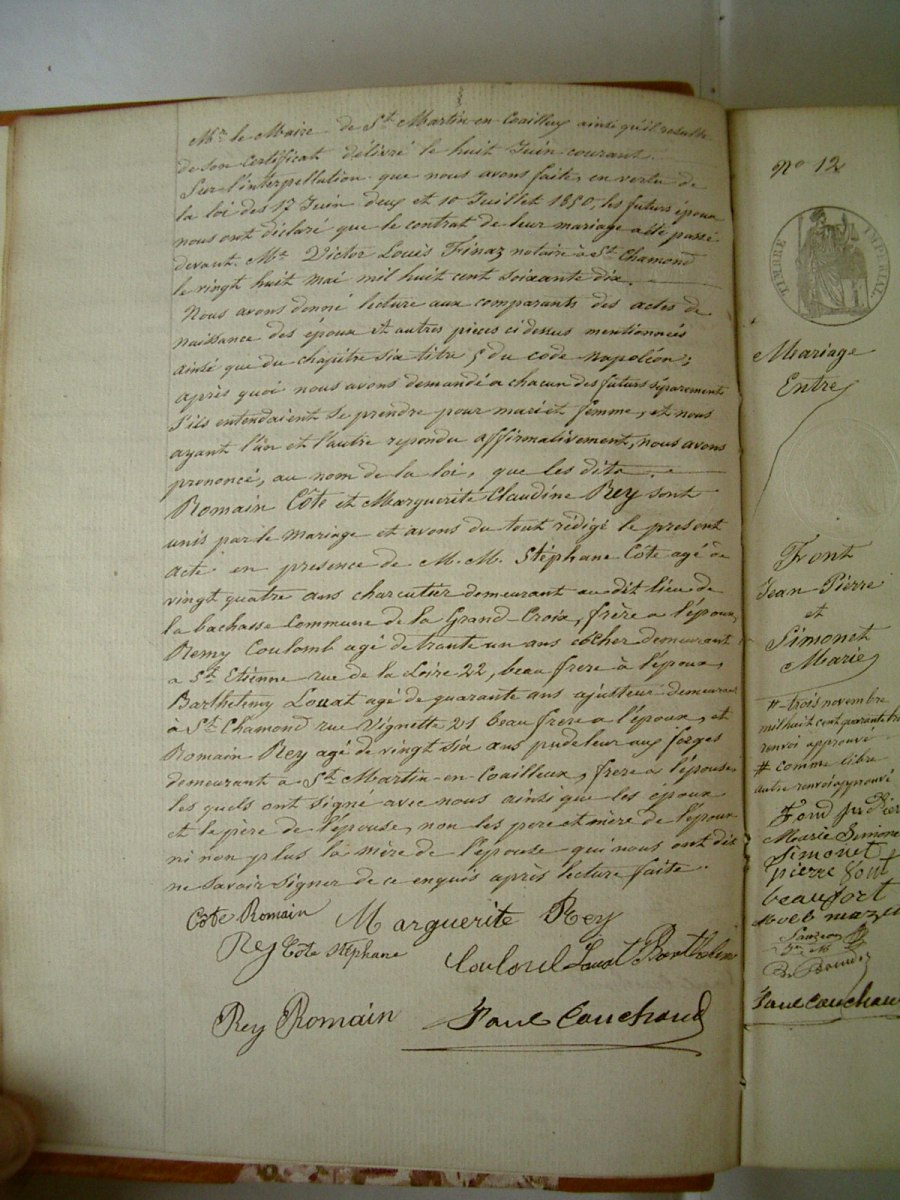 Mr le Maire de St Martin-en-Coailleux ainsi qu'il resulte
de son certificat délivré le huit Juin courant.
Sur l'interpellation que nous avons faite, en vertu de
la loi des 17 Juin deux et 10 Juillet 1850, les futurs époux
nous ont déclaré que le contrat de leur mariage a été passé
devant Me Victor Louis Finaz notaire à St Chamond
le vingt huit mai mil huit cent soixante dix.
Nous avons donné lecture aux comparants des actes de
naissance des époux et autres pièces ci dessus mentionnées
ainsi que du chapitre six titre 5 du code napoléon;
après quoi nous avons demandé a chacun des futurs séparements
s'ils entendaient se prendre pour mari et femme, et nous
ayant l'un et l'autre repondu affirmativement, nous avons
prononcé, au nom de la loi, que les dits
Romain Côte et Marguerite Claudine Rey sont
unis par le mariage et avons du tout rédigé le present
acte en presence de M.M. Stéphane Côte agé de
vingt quatre ans charcutier demeurant au dit lieu de
la bachasse Commune de la Grand-Croix, frère a l'époux,
Remy Coulomb agé de trante un ans côcher demeurant
a St Etienne rue de la Loire 22, beau frere à l'époux,
Barthelemy Louat agé de quarante ans ajusteur demeurant
à St Chamond rue Vignette 21 beau frere a l'époux, et
Romain Rey agé de vingt six ans pudeleur aux forges
demeurant à St Martin-en-Coailleux, frere a l'épouse,
les quels ont signé avec nous ainsi que les époux
et le père de l'épouse, non les pere et mère de l'époux
ni non plus la mère de l'épouse qui nous ont dit
ne savoir signer de ce enquis après lecture faite.
Côte Romain Marguerite Rey
Rey Côte Stéphane Coulomb Louat Barthelemi
Rey Romain Paul Couchoud
No 12
TIMBRE IMPERIAL
Mariage
Entre
Font
Jean-Pierre
et
Simonet
Marie
# trois novembre
mil huit cent quarante
renvoi approuvé
# comme libre
autre renvoi approuvé
Marie Simone
Simonet
pierre font
beaufort
Paul Couchoud